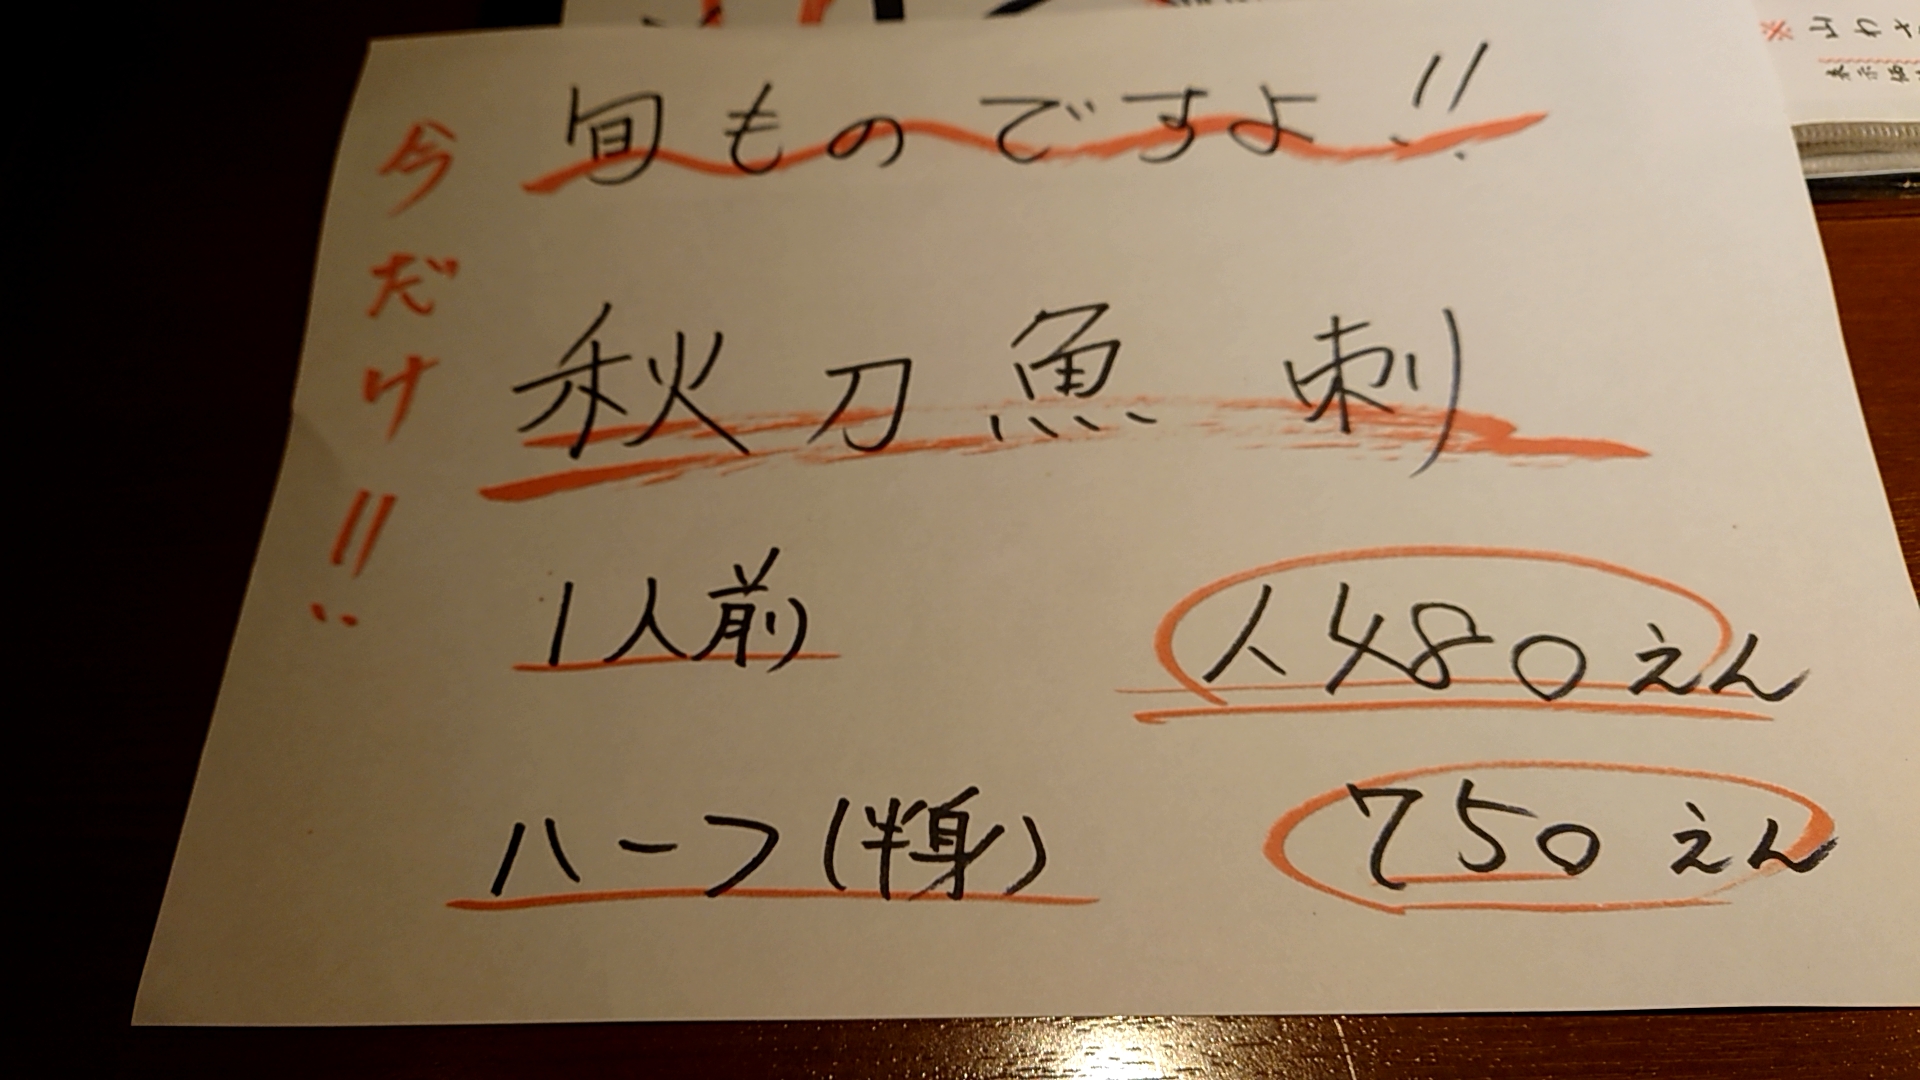 旬ものですよ!!
今だけ!!
秋刀魚刺
1人前 1,480えん
ハーフ(半身) 750えん
※山わさ
表示価